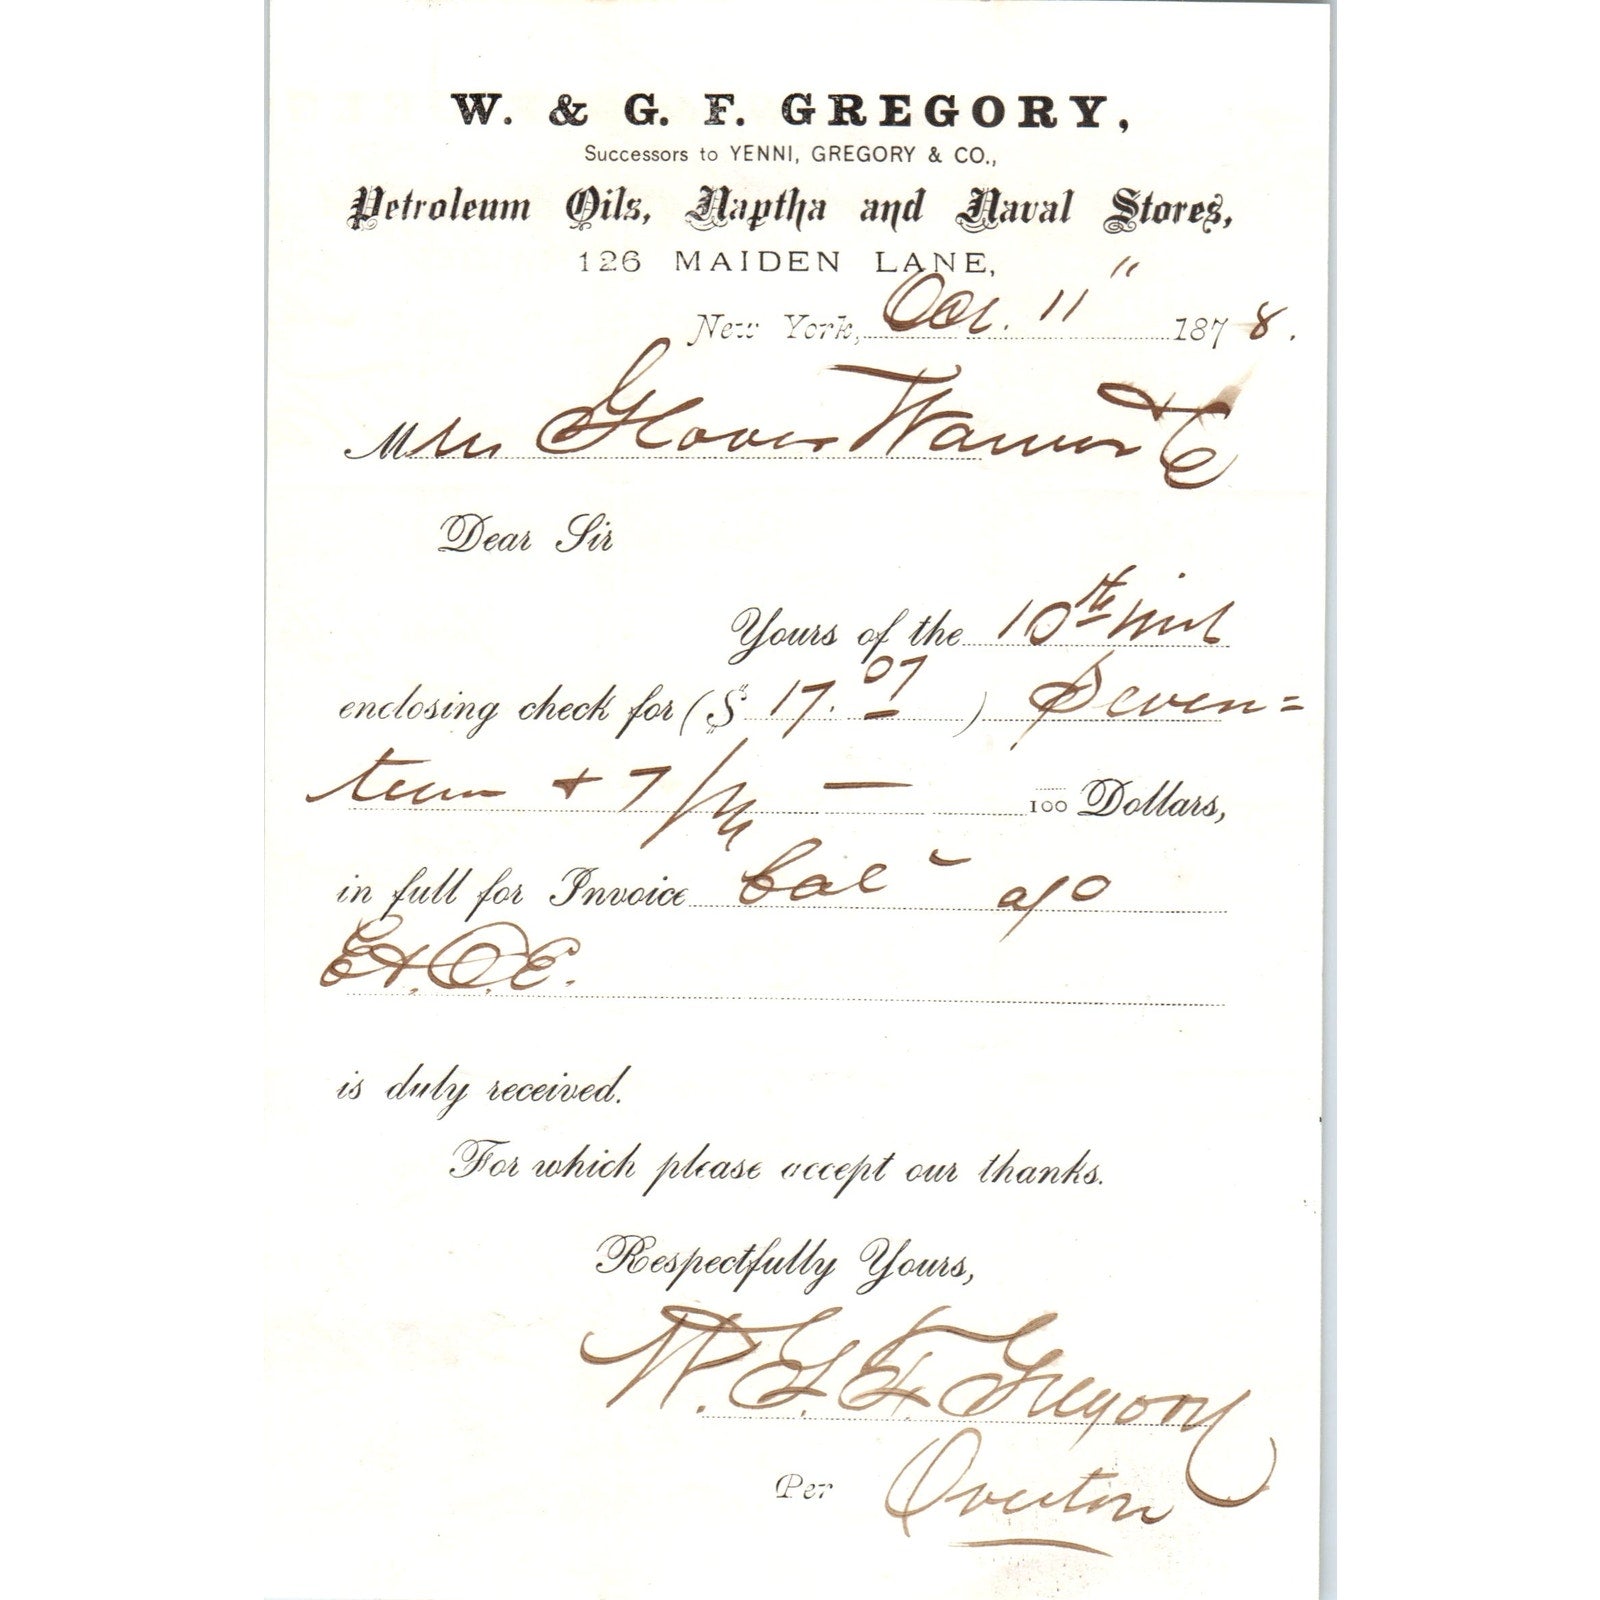 W. & G. F. GREGORY,
Successors to YENNI, GREGORY & CO.,
Petroleum Oils, Naptha and Naval Stores,
126 MAIDEN LANE,
New York, Oct. 11" 1878.
Messrs Glover Warner & Co
Dear Sir
Yours of the 10th inst
enclosing check for ($ 17.07) Seven=
teen + 7/100 — 100 Dollars,
in full for Invoice bal a/c
E. & O. E.
is duly received.
For which please accept our thanks.
Respectfully Yours,
W. G. F. Gregory
Per Overton